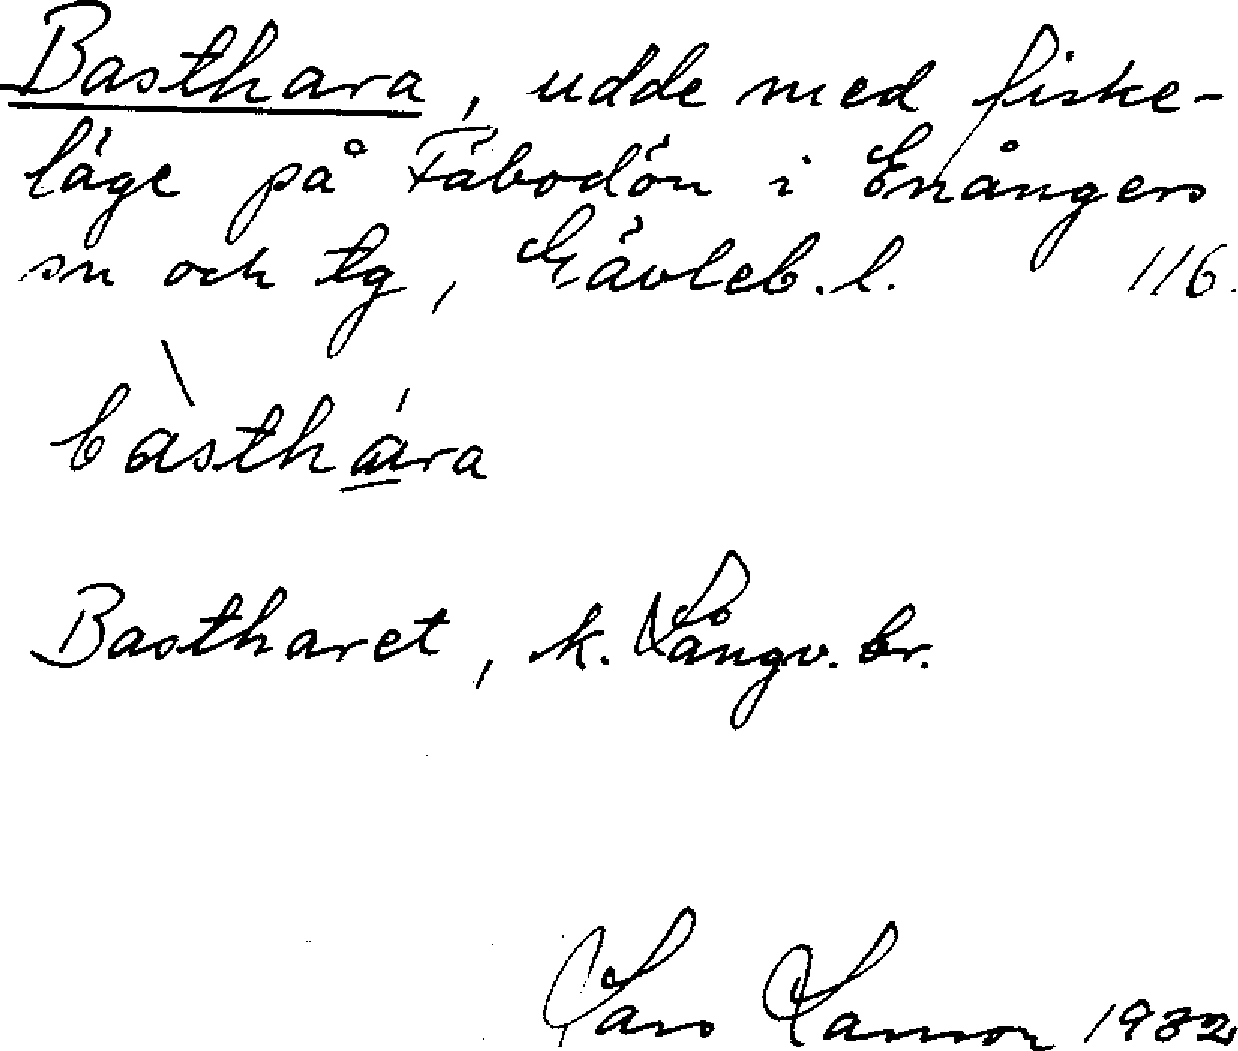 Basthara, udde med fiske-
läge på Fäbodön i Enångers
sn och tg, Gävleb. l. 116.
bàsthára
Bastharet, k. Långv. br.
Lars 1932